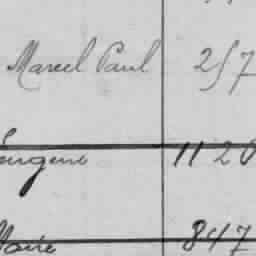 Marcel Paul 257
Eugene 1120
Marie 847